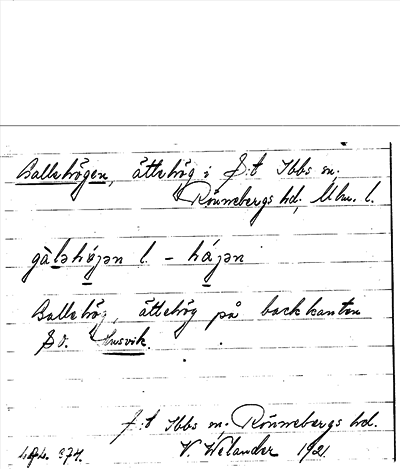 Ballehögen, ättehög i S:t Ibbs sn,
Rönnebergs hd, Mlm. l.
gàləhǿjən l. - hǿjən
Ballehög, ättehög på backkanten
SV. Husvik.
S:t Ibbs sn. Rönnebergs hd.
V. Welander 1921.